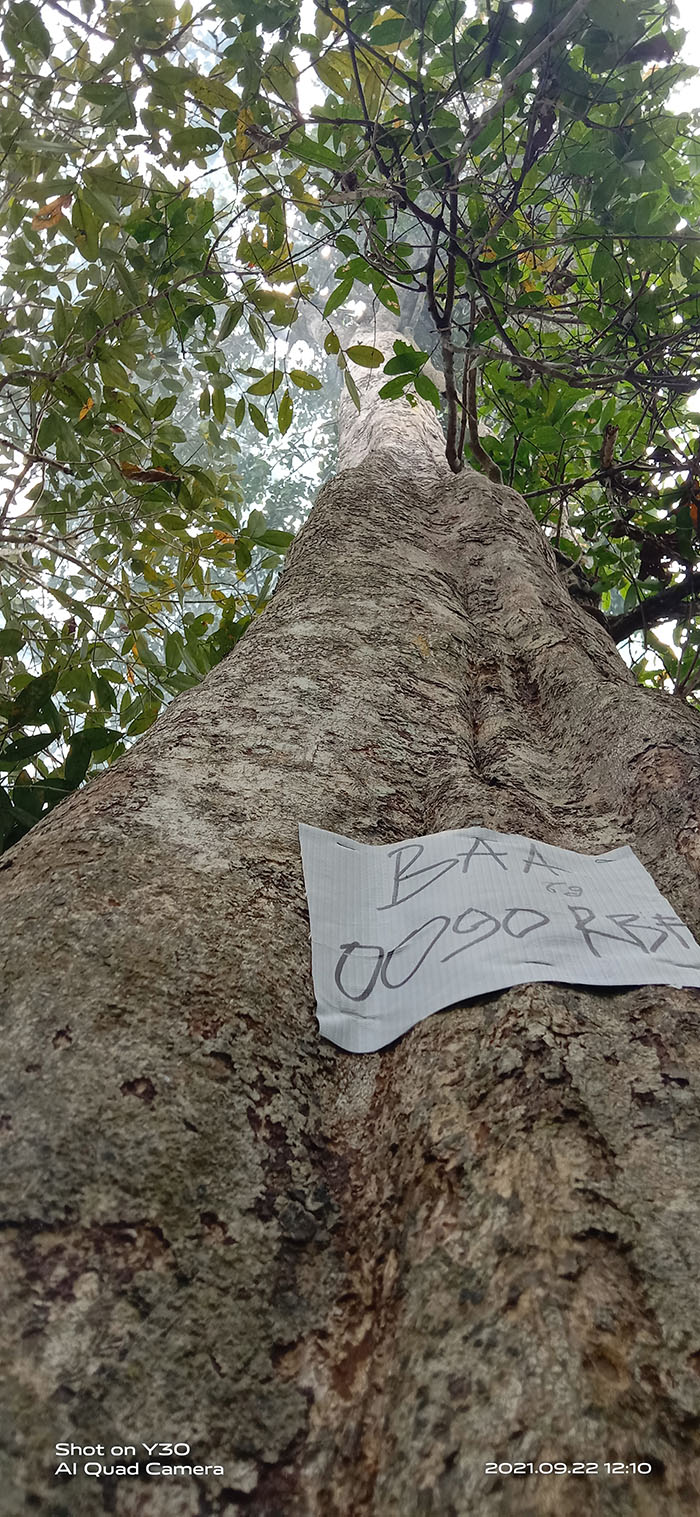 BAA
69
0090 RBF
Shot on Y30
AI Quad Camera
2021.09.22 12:10